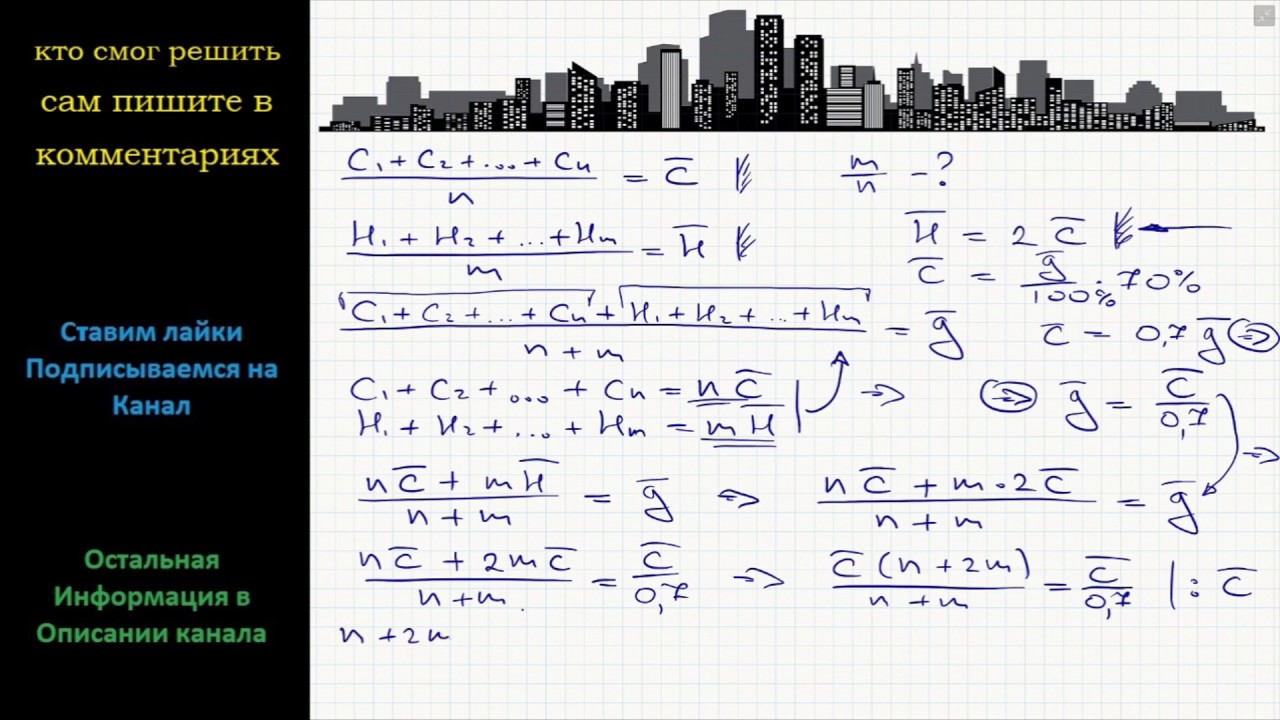 кто смог решить
сам пишите в
комментариях
Ставим лайки
Подписываемся на
Канал
Остальная
Информация в
Описании канала
(C₁ + C₂ + ... + Cn)/n = C̅
m/n - ?
(H₁ + H₂ + ... + Hm)/m = H̅
H̅ = 2 C̅ ←
C̅ = g̅/100% · 70%
(C₁ + C₂ + ... + Cn + H₁ + H₂ + ... + Hm)/(n + m) = g̅
C̅ = 0,7 g̅ ⇒
C₁ + C₂ + ... + Cn = n C̅
H₁ + H₂ + ... + Hm = m H̅ ⇒
⇒ g̅ = C̅/0,7 ⇒
(n C̅ + m H̅)/(n + m) = g̅ ⇒ (n C̅ + m · 2 C̅)/(n + m) = g̅
(n C̅ + 2m C̅)/(n + m) = C̅/0,7 ⇒ C̅ (n + 2m)/(n + m) = C̅/0,7 | : C̅
n + 2m